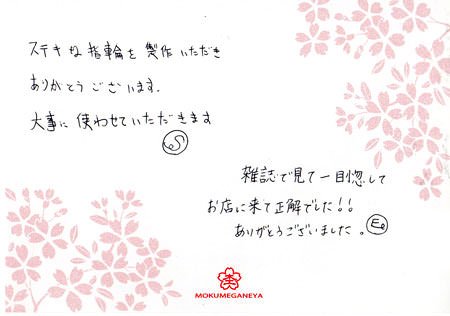 ステキな指輪を製作いただき
ありがとうございます.
大事に使わせていただきます
S
雑誌で見て一目惚して
お店に来て正解でした!!
ありがとうございました。
MOKUMEGANEYA